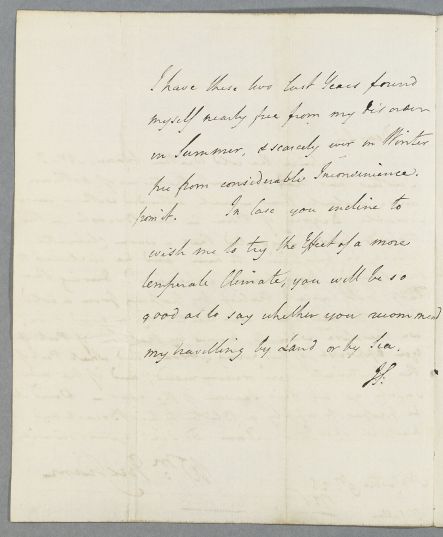 I have these two last Years found
myself nearly free from my disorder
in Summer, & scarcely ever in Winter
free from considerable Inconvenience.
from it. In case you incline to
wish me to try the Effect of a more
temperate Climate, you will be so
good as to say whether you recommend
my travelling by Land or by Sea.